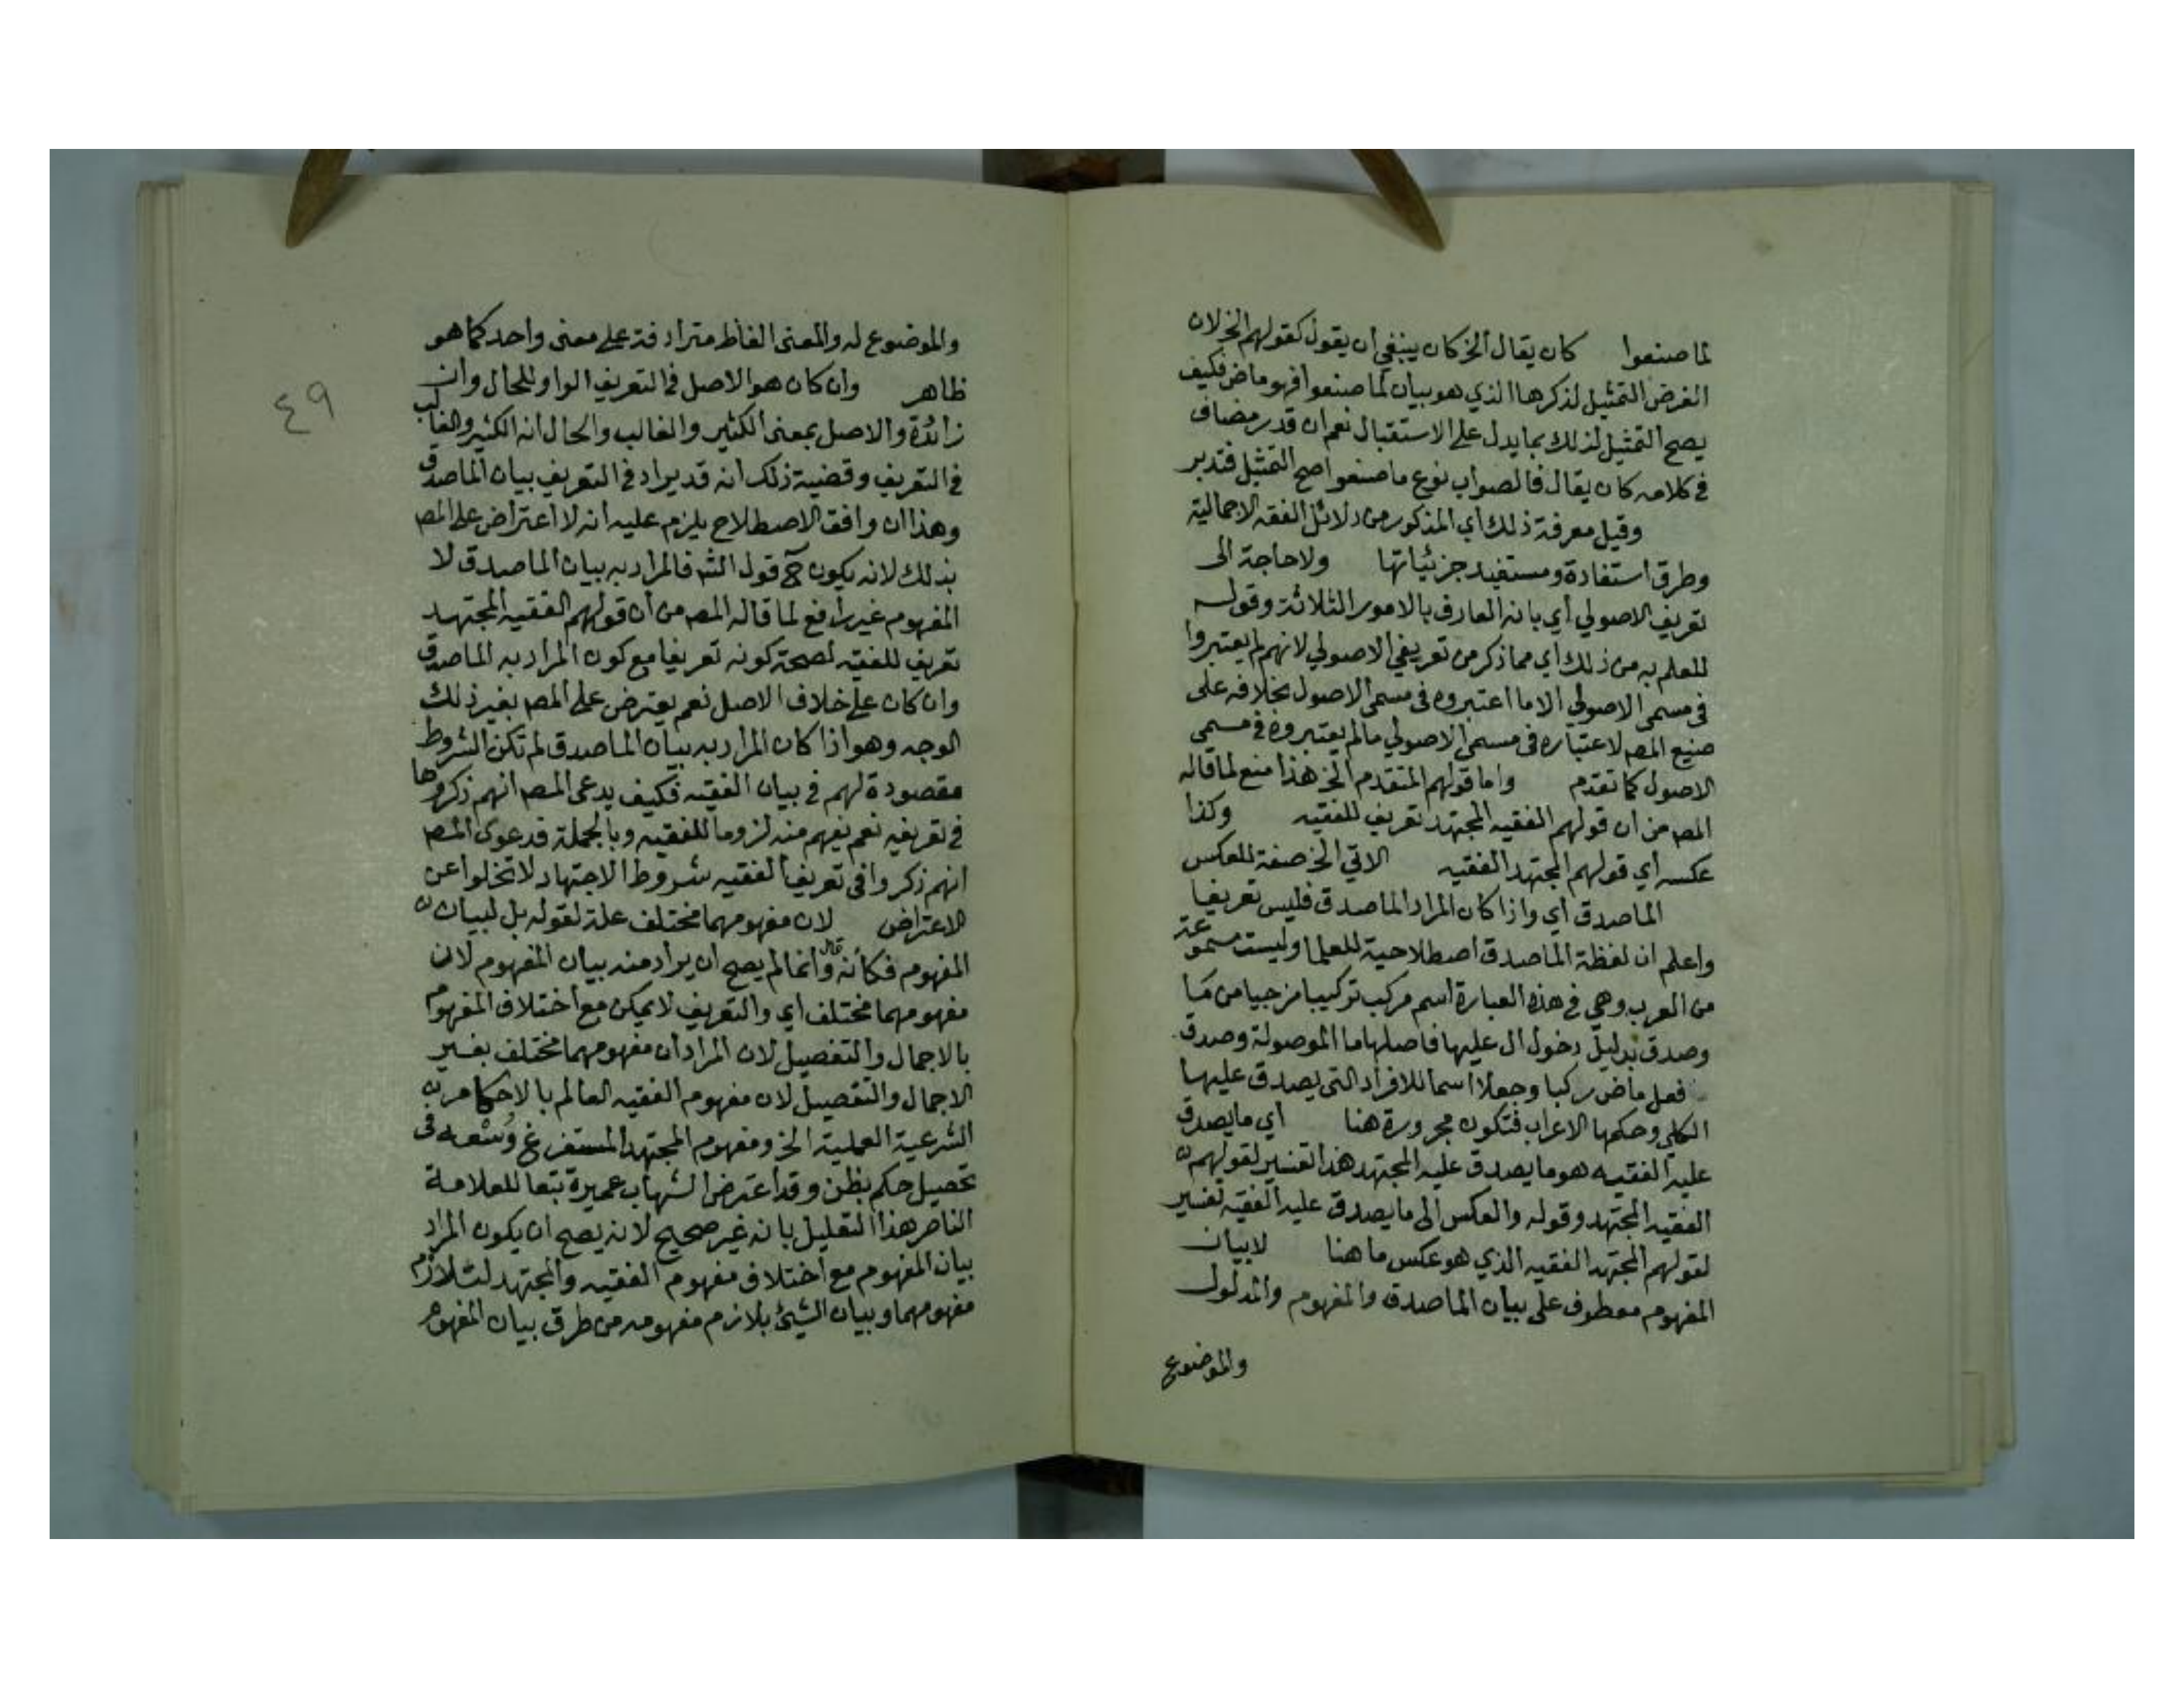 لما صنعوا كان يقال الخ كان ينبغي ان يقول كقولهم الخ لان
الغرض التمثيل لذكرها الذي هو بيان لما صنعوا فهو ماض فكيف
يصح التمثيل لذلك بما يدل على الاستقبال نعم ان قدر مضاف
في كلامه كان يقال فالصواب نوع ما صنعوا صح التمثيل فتدبر
وقيل معرفة ذلك اي المذكور من دلائل الفقه الاجمالية
وطرق استفادة ومستفيد جزئياتها ولا حاجة الى
تعريف الاصولي أي بانه العارف بالامور الثلاثة وقوله
للعلم به من ذلك اي مما ذكر من تعريفي الاصولي لانهم لم يعتبروا
في مسمى الاصولي الا ما اعتبروه في مسمى الاصول بخلافه على
صنيع المصـ لاعتباره في مسمى الاصولي مالم يعتبروه في مسمى
الاصول كما تقدم واما قولهم المتقدم الخ هذا منع لما قاله
المصـ من ان قولهم الفقيه المجتهد تعريف للفقيه وكذا
عكسه أي قولهم المجتهد الفقيه الاتي الخ صفة للعكس
الماصدق أي واذا كان المراد الماصدق فليس تعريفيا
واعلم ان لفظة الماصدق اصطلاحية للعلما وليست مسموعة
من العرب وهي في هذه العبارة اسم مركب تركيبا مزجيا من مَا
وصدق بدليل دخول ال عليها فاصلها ما الموصولة وصدق
فعل ماض ركبا وجعلا اسما للافراد التي يصدق عليها
الكلي وحكمها الاعراب فتكون مجرورة هنا أي ما يصدق
عليه الفقيه هو ما يصدق عليه المجتهد هذا تفسير لقولهم
الفقيه المجتهد وقوله والعكس الى ما يصدق عليه الفقيه تفسير
لقولهم المجتهد الفقيه الذي هو عكس ما هنا لا بيان
المفهوم معطوف على بيان الماصدق والمفهوم والمدلول
والموضوع
٤٩
والموضوع له والمعنى الفاظ مترادفة على معنى واحد كما هو
ظاهر وان كان هو الاصل في التعريف الواو للحال وان
زائدة والاصل بمعنى الكثير والغالب والحال انه الكثير والغالب
في التعريف وقضية ذلك انه قد يراد في التعريف بيان الماصدق
وهذا ان وافق الاصطلاح يلزم عليه انه لا اعتراض على المصـ
بذلك لانه يكون ح قول الشـ فالمراد به بيان الماصدق لا
المفهوم غير رافع لما قاله المصـ من أن قولهم الفقيه المجتهد
تعريف للفقيه لصحة كونه تعريفا مع كون المراد به الماصدق
وان كان على خلاف الاصل نعم يعترض على المصـ بغير ذلك
الوجه وهو اذا كان المراد به بيان الماصدق لم تكن الشروط
مقصودة لهم في بيان الفقيه فكيف يدعى المصـ انهم ذكروها
في تعريفه نعم يفهم منه لزوما للفقيه وبالجملة فدعوى المصـ
انهم ذكروا في تعريف الفقيه شروط الاجتهاد لا تخلوا عن
الاعتراض لان مفهومهما مختلف علة لقوله بل لبيان
المفهوم فكأنه قال وانما لم يصح ان يراد منه بيان المفهوم لان
مفهومهما مختلف اي والتعريف لا يمكن مع اختلاف المفهوم
بالاجمال والتفصيل لان المراد ان مفهومهما مختلف بغير
الاجمال والتفصيل لان مفهوم الفقيه العالم بالاحكام
الشرعية العملية الخ ومفهوم المجتهد المستفرغ وُسْعه في
تحصيل حكم بظن وقد اعترض الشهاب عميرة تبعا للعلامة
الناصر هذا التعليل بانه غير صحيح لانه يصح ان يكون المراد
بيان المفهوم مع اختلاف مفهوم الفقيه والمجتهد لتلازم
مفهومهما وبيان الشيئ بلازم مفهومه من طرق بيان المفهوم